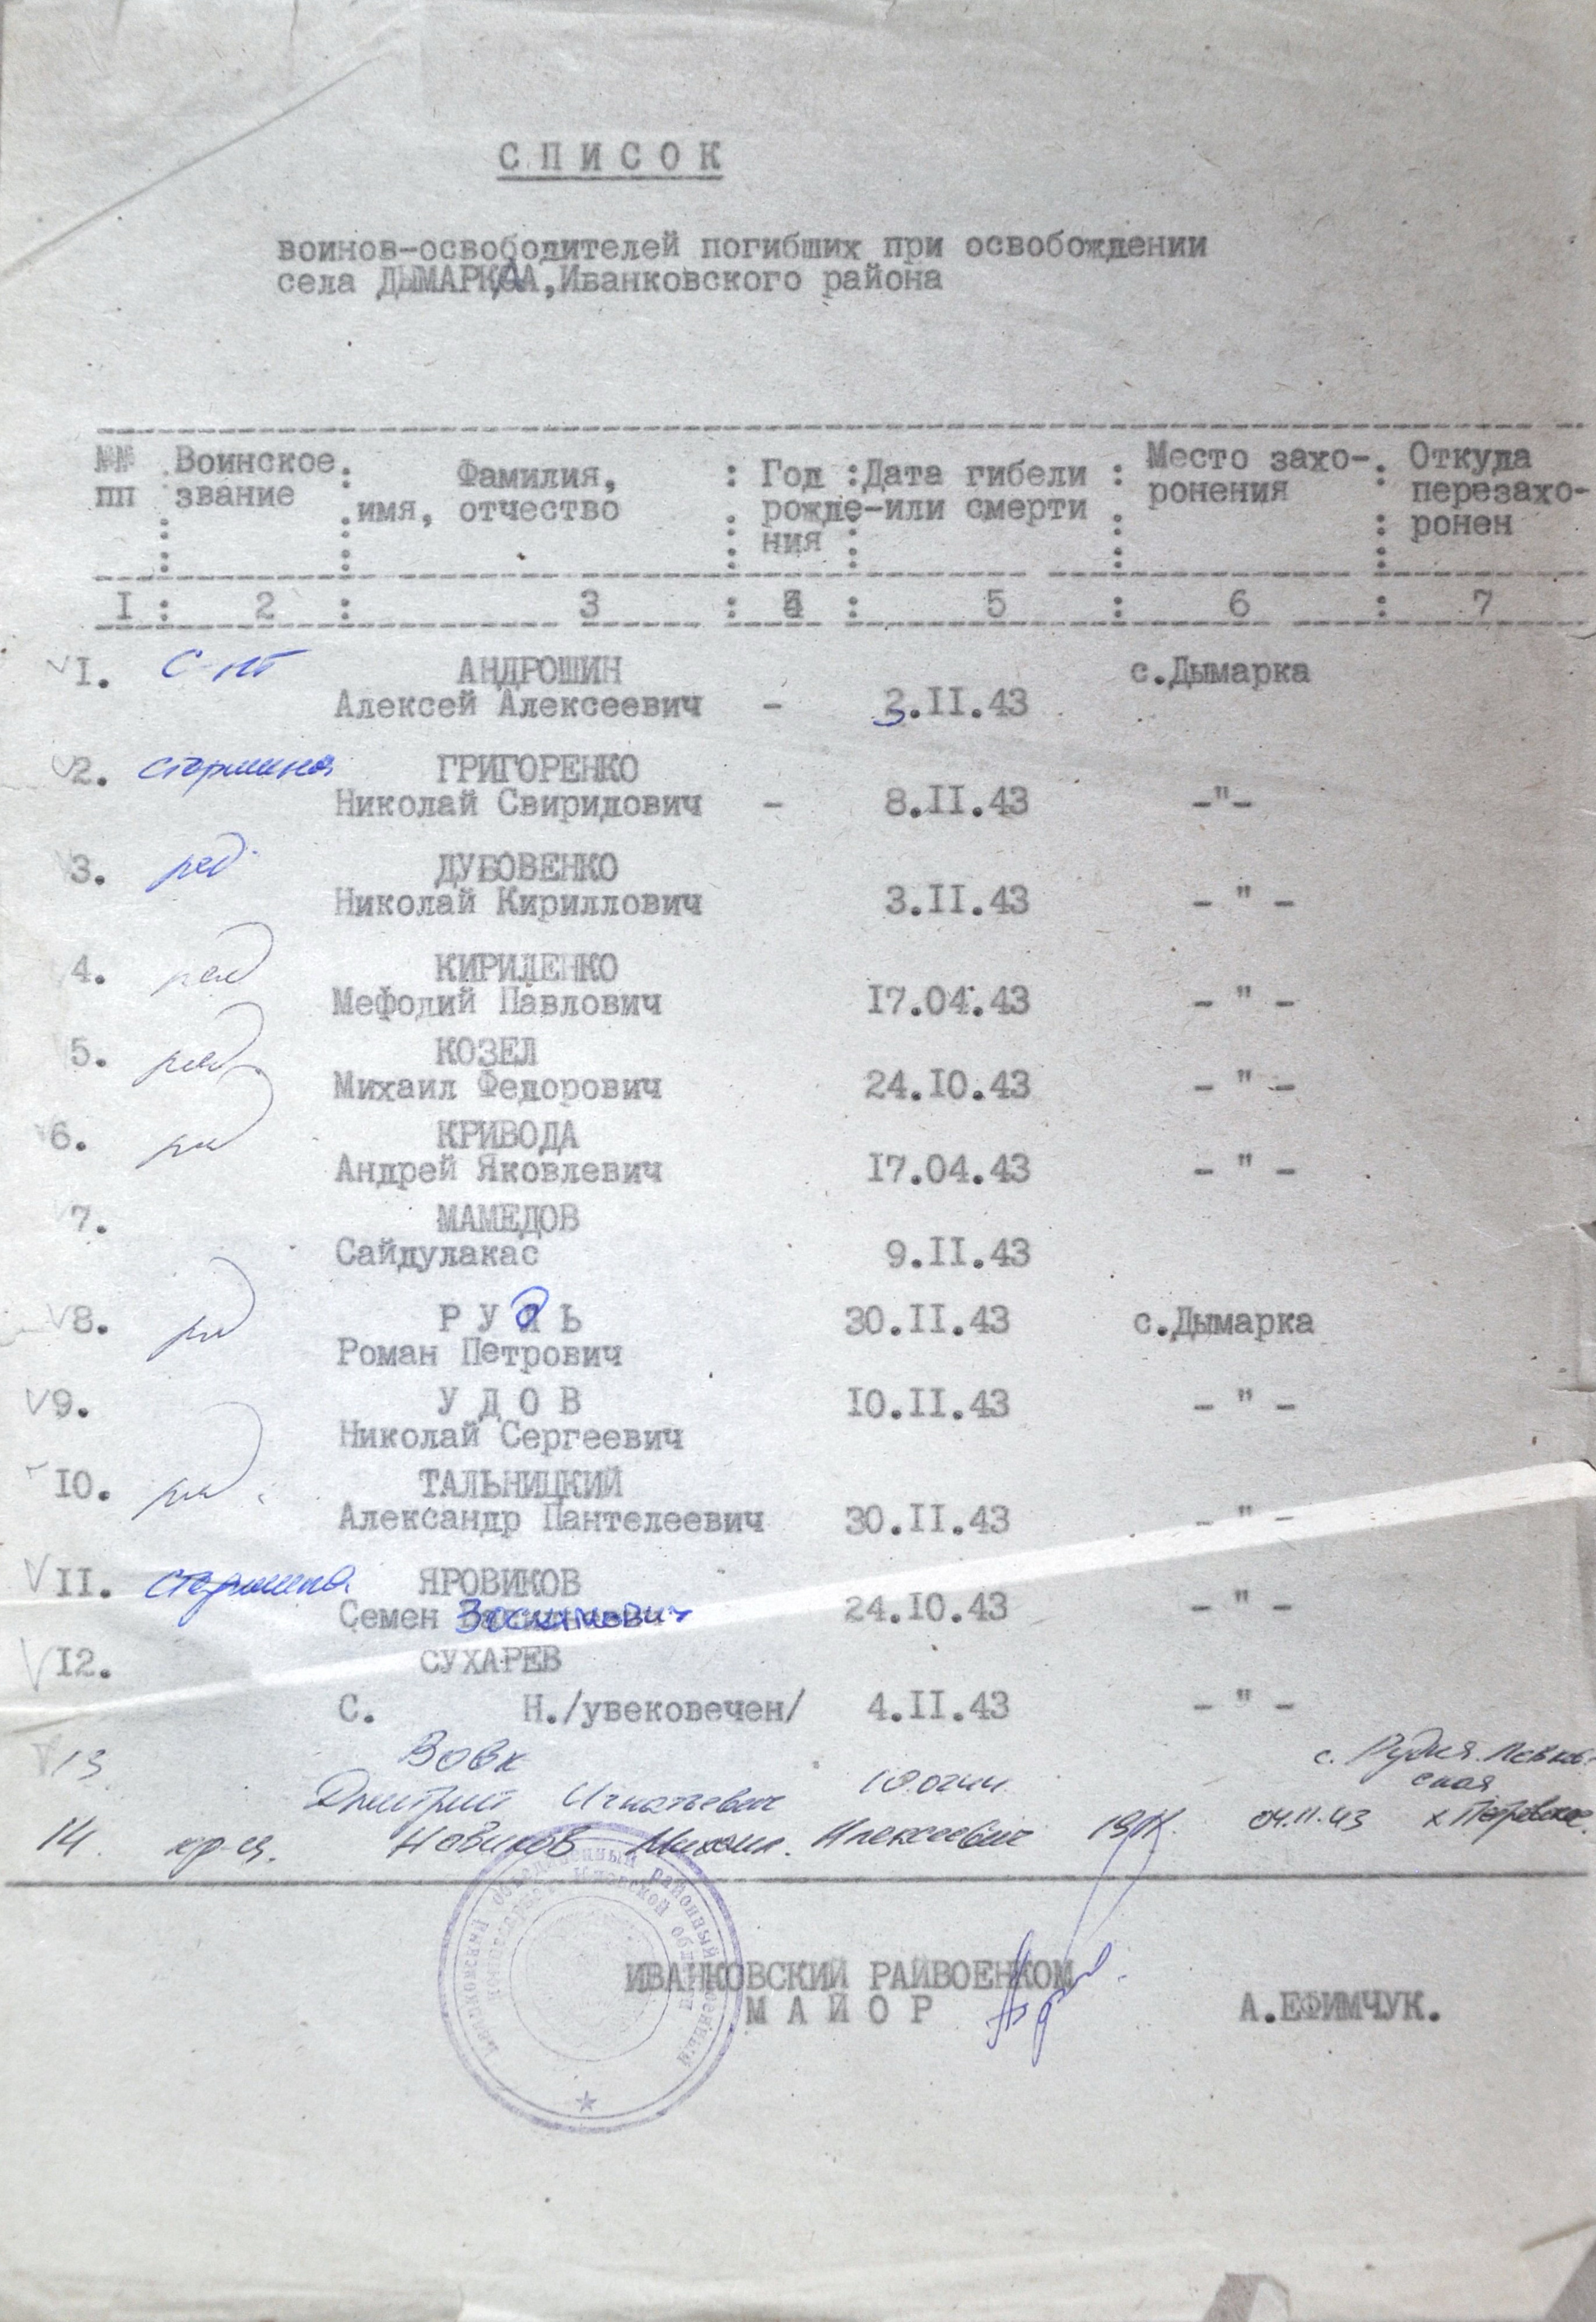 СПИСОК
воинов-освободителей погибших при освобождении
села ДЫМАРКА,Иванковского района
№№ : Воинское : Фамилия, : Год : Дата гибели : Место захо- : Откуда
пп : звание : имя, отчество : рожде- или смерти : ронения : перезахо-
ния : ронен
I : 2 : 3 : 4 : 5 : 6 : 7
I. с-нт АНДРОШИН с.Дымарка
Алексей Алексеевич - 3.II.43
2. старшина ГРИГОРЕНКО
Николай Свиридович - 8.II.43 -"-
3. ряд. ДУБОВЕНКО
Николай Кириллович 3.II.43 - " -
4. ряд КИРИДЕНКО
Мефодий Павлович I7.04.43 - " -
5. ряд. КОЗЕЛ
Михаил Федорович 24.IO.43 - " -
6. ряд КРИВОДА
Андрей Яковлевич I7.04.43 - " -
7. МАМЕДОВ
Сайдулакас 9.II.43
8. ряд РУДЬ 30.II.43 с.Дымарка
Роман Петрович
9. УДОВ IO.II.43 - " -
Николай Сергеевич
IO. ряд. ТАЛЬНИЦКИЙ
Александр Пантелеевич 30.II.43 - " -
II. старшина ЯРОВИКОВ
Семен Зосимович 24.IO.43 - " -
I2. СУХАРЕВ
С. Н./увековечен/ 4.II.43 - " -
13 Вовк с. Рудня
Дмитрий Игнатьевич
14. кр-ец. Новиков Михаил. Алексеевич 04.11.43 х. Петровское.
Иванковский объединенный районный военный
комиссариат Киевской области
ИВАНКОВСКИЙ РАЙВОЕНКОМ
МАЙОР А.ЕФИМЧУК.